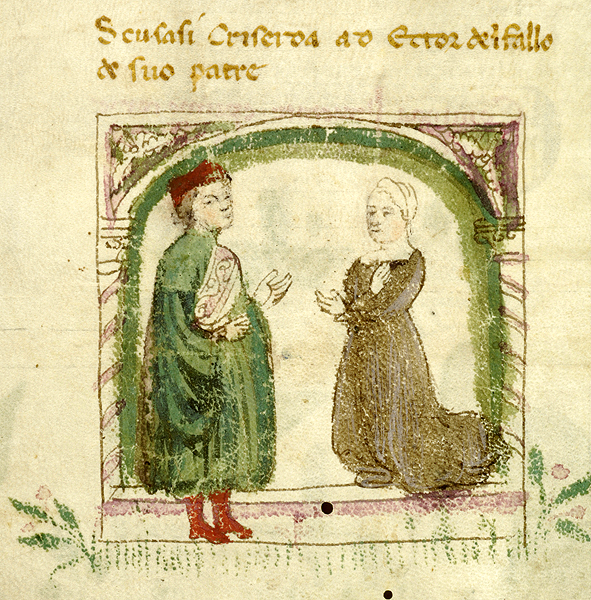 Scusasi Criseida ad Ector del fallo
de suo patre